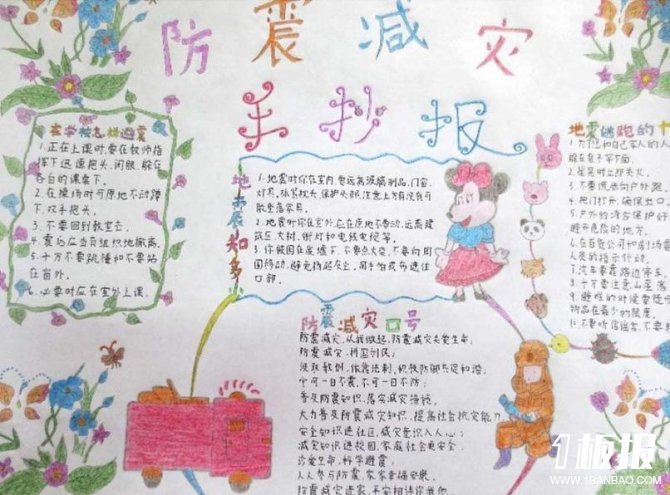 防震减灾
手抄报
在学校怎样避震
1.正在上课时要在教师指
挥下迅速抱头、闭眼、躲在
各自的课桌下。
2.在操场时可原地不动蹲
下,双手抱头。
3.不要回到教室去。
4.震后应当有组织地撤离。
5.千万不要跳楼和不要站
在窗外。
6.必要时应在室外上课。
地震知多
1.地震时你在室内,要远离玻璃制品、门窗、
灯具,
散坠落家具。
2.地震时你在室外应在原地不要动,远离建
筑区、大树、街灯和电线电缆等。
3.你被困在废墟下,不要点火,不要向周
围移动,避免扬起灰尘,用手帕或布遮住
口部。
防震减灾口号
防震减灾,从我做起;防震减灾关爱生命;
防震减灾,利国利民;
宁可一日不震,不可一日不防;
普及防震知识,
大力普及防震减灾知识,提高社会抗灾能力
安全知识进社区,减灾意识入人心;
减灾知识进校园,家庭社会更安全;
珍爱生命,科学避震;
人人参与防震,家家幸福安康。
防震减灾进家,平安相伴你我他
地震逃跑的
1.为你和自己家人的人
躲在桌子等下面。
2.摇晃时立即关火。
3.不要慌张向户外跑
4.把门打开,确保出口。
5.户外的场合保护好
避开危险的地方。
6.在百货公司和剧场
人员的指示行动。
7.汽车要靠路边停车
8.千万要注意山崖落
9.避难的时候要
物品在最少的限度。
10.不要听信谣言,不要
1板报
WWW.1BANBAO.COM